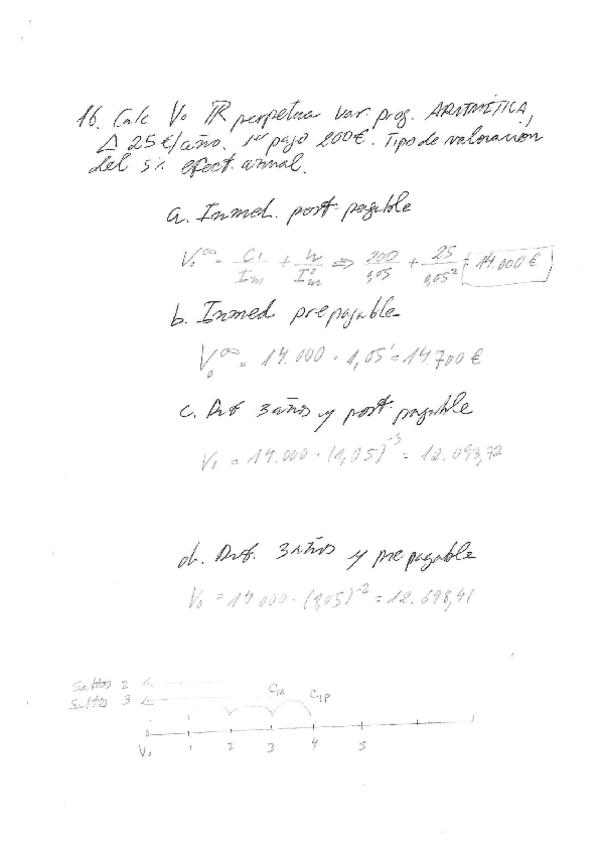 16. Calc V₀ TR perpetua var. prog. ARITMÉTICA,
Δ 25€/año. 1er pago 200€. Tipo de valoración
del 5% efect. annual.
a. Inmed. post-pagable
V₀^∞ = C₁/Im + h/I²m ⇒ 200/0,05 + 25/0,05² = 14.000 €
b. Inmed prepagable
V₀^∞ = 14.000 · 1,05¹ = 14.700 €
c. Dif 3 años y post-pagable
V₀ = 14.000 · (1,05)⁻³ = 12.093,72
d. Dif. 3 años y prepagable
V₀ = 14.000 · (1,05)⁻² = 12.698,41
Saltos 2
Saltos 3 C1A C1P
V₀ 1 2 3 4 5